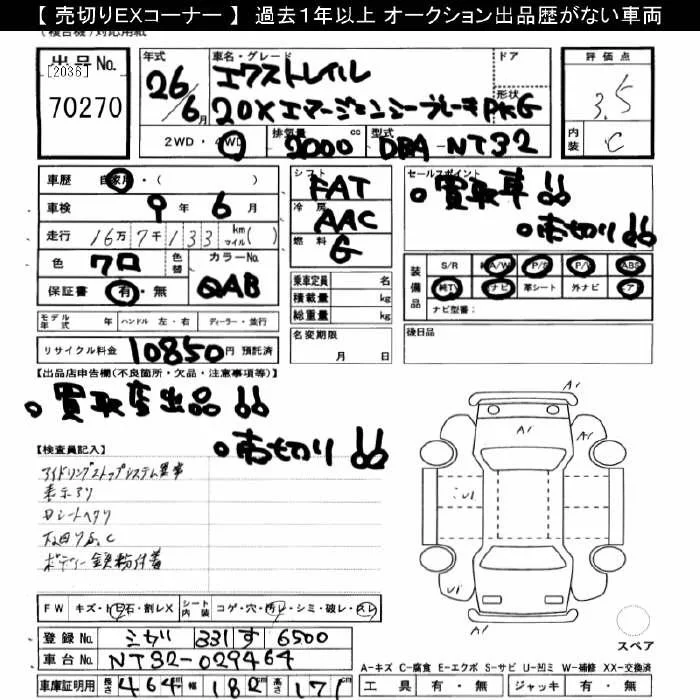 【 売切りEXコーナー 】 過去1年以上 オークション出品歴がない車両
出品No.
[2036]
70270
年式
26/6月
車名・グレード
エクストレイル
20X エマージェンシーブレーキPKG
ドア
形状
評価点
3.5
内装
C
2WD・4WD
排気量
2000 cc
型式
DBA-NT32
車歴 自家用・( )
車検 9年 6月
走行 16万7千133 km マイル( )
色 クロ
色替
カラーNo.
GAB
保証書 有・無
シフト
FAT
冷房
AAC
燃料
G
乗車定員 名
積載量 kg
総重量 kg
名変期限
月 日
セールスポイント
。買取車!!
。売切り!!
装備品
S/R 純A/W P/S P/W ABS
純TV ナビ 革シート 外ナビ エア
ナビ型番:
後日品
モデル年式 年 ハンドル 左・右 ディーラー・並行
リサイクル料金 10850円 預託済
【出品店申告欄(不良箇所・欠品・注意事項等)】
。買取店出品!!
。売切り!!
【検査員記入】
アイドリングストップシステム異常
表示アリ
Dシートヘタリ
ボディー鉄粉付着
A1
A1
A1
A1
FW キズ・ト石・割レX
シート内装 コゲ・穴・汚レ・シミ・破レ・スレ
登録No. 331 す 6500
車台No. NT32-029464
車庫証明用 長さ 464cm 幅 182cm 高さ 171cm
スペア
A-キズ C-腐食 E-エクボ S-サビ U-凹ミ W-補修 XX-交換済
工具 有・無 ジャッキ 有・無